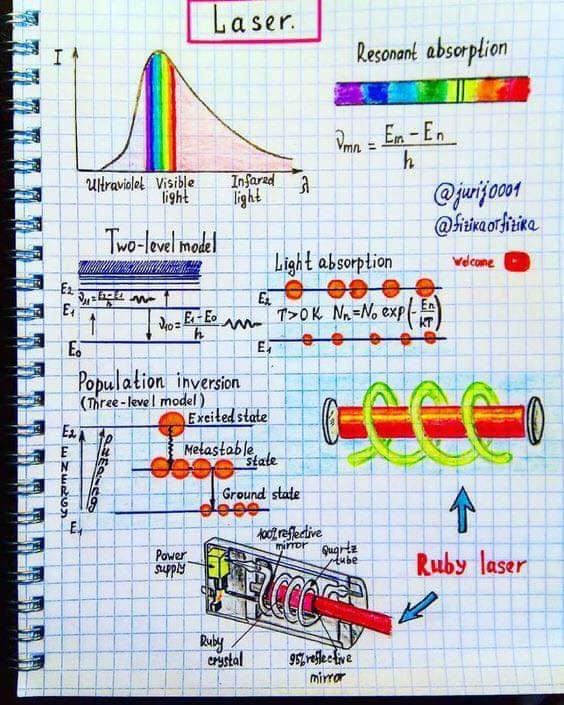 Laser.
I
Ultraviolet Visible light Infared light λ
Resonant absorption
ν_mn = (E_m - E_n) / h
@jurij0001
@fizikaotfizika
Welcome
Two-level model
E₂
ν₂₁ = (E₂ - E₁) / h
E₁
ν₁₀ = (E₁ - E₀) / h
E₀
Light absorption
E₂
T>0 K Nₙ=N₀ exp(-Eₙ/kT)
E₁
Population inversion
(Three-level model)
E₂
ENERGY
E₁
Pumping
Excited state
Metastable
state
Ground state
Ruby laser
Power
supply
100% reflective
mirror
Quartz
tube
Ruby
crystal
95% reflective
mirror